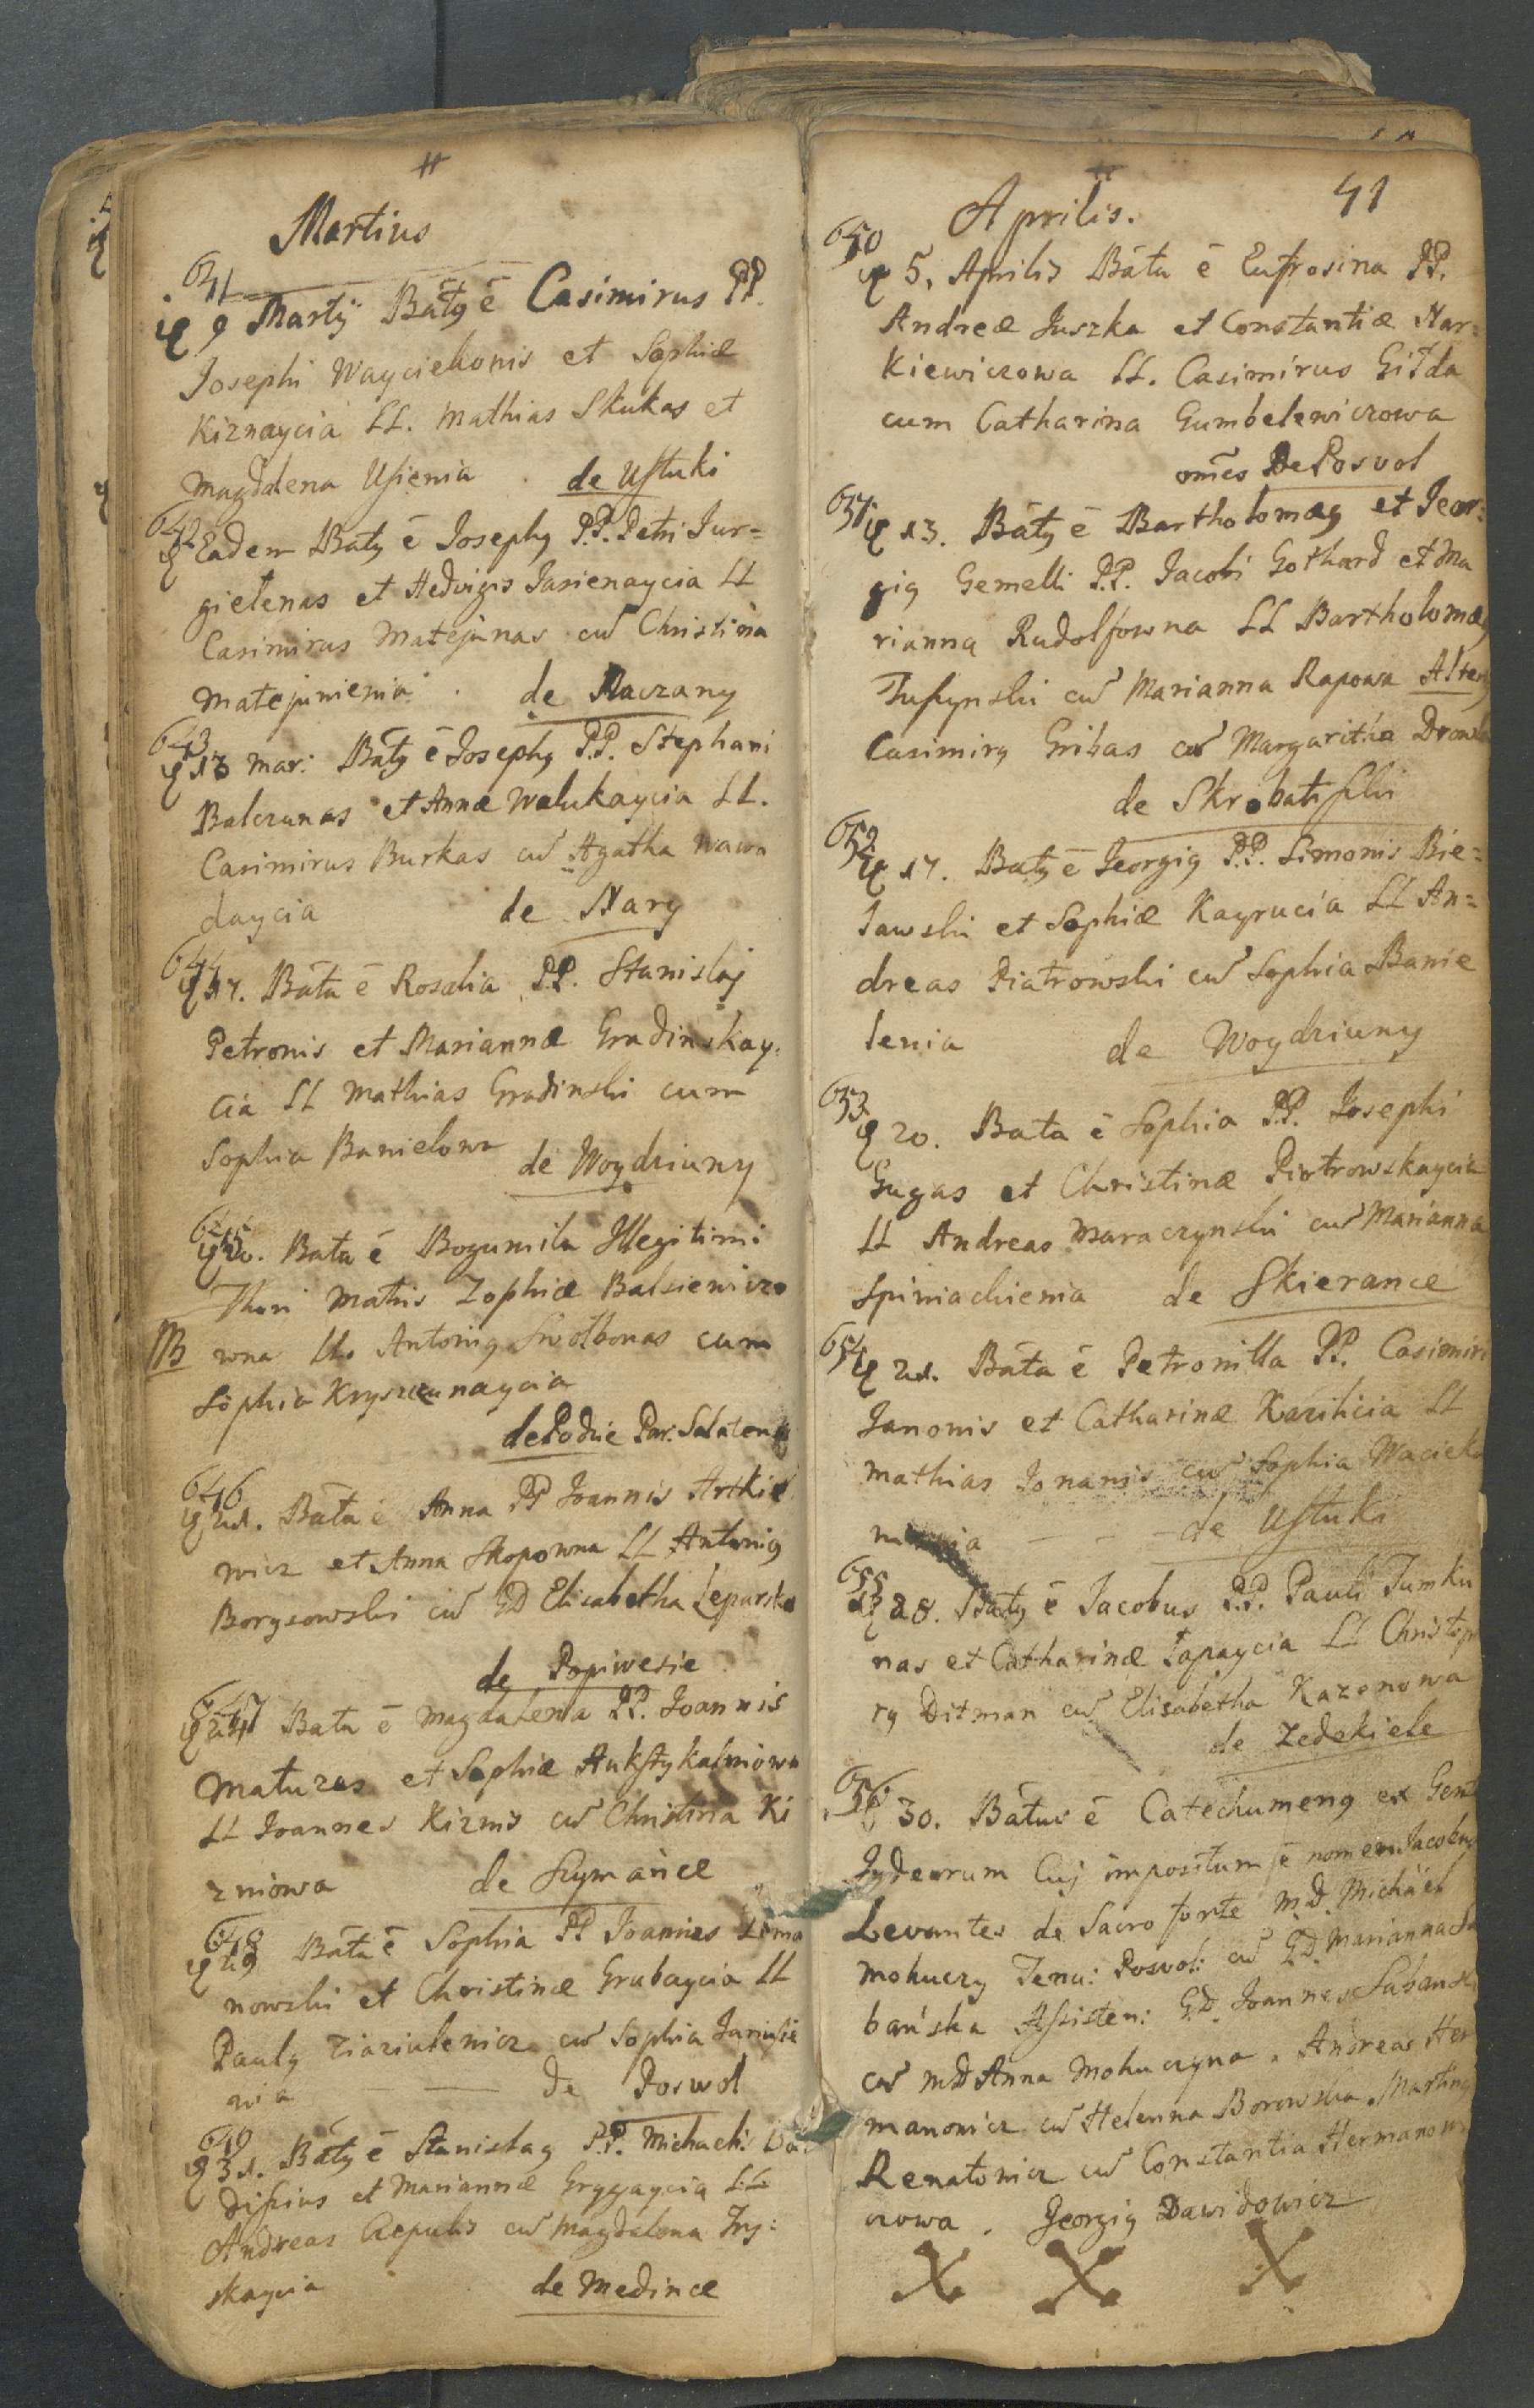 Martius
641
9 Martij Batg ē Casimirus PP.
Josephi Wayciekonis et Sophiæ
Kiznaycia LL. Mathias Skukas et
Magdalena Usienia de Ustuki
642
Eadem Batg ē Josephg P.P. Petri Jur=
gielenas et Hedvigis Jasienaycia LL
Casimirus Matejunas cū Christina
Matejunienia. de Raczany
643
13 Mar: Batg ē Josephg P.P. Stephani
Balczunas et Annæ Walukaycia LL.
Casimirus Burkas cū Agatha Wawa
daycia de Nary
644
17. Bāta ē Rosalia P.P. Stanislaj
Petronis et Mariannæ Gradinskay.
cia LL Mathias Gradinski cum
Sophia Banielowa de Woydziuny
645
20. Bāta ē Bogumila Illegitimi
Thori Matris Zophiæ Balsiewiczo
NB wna LL. Antonig Swolbonas cum
Sophia Kryszcunaycia
de Podzie Par. Salaten
646
21. Bāta ē Anna PP Joannis Artkie
wicz et Anna Skopowna LL Antonig
Borysowski cū GD Elisabetha Lepurska
de Popiwesie
647
Bata ē Magdalena PP. Joannis
Matuzas et Sophiæ Aukstykalniowa
LL Joannes Kiznis cū Christina Ki
zniowa de Szymańce
648
29 Bāta ē Sophia PP Joannes Lima
nowski et Christinæ Grubaycia LL
Paulg Ziaziulewicz cū Sophia Jurusie
wia de Poswol
649
31. Bātg ē Stanislag P.P. Michaeli
dissius et Mariannæ Grygaycia LL
Andreas Czepulis cū Magdalena Trj:
skaycia de Medince
41
Aprilis.
650
5. Aprilis Bāta ē Eufrosina PP.
Andreæ Juszka et Constantiæ Nar=
kiewiczowa LL. Casimirus Gilda
cum Catharina Gumbelewiczowa
om̄es De Posvol
651
13. Bātg ē Bartholomæg et Jeor=
gig Gemelli P.P. Jacobi Gothard et Ma
rianna Rudolfowna LL Bartholomæg
Tuszynski cū Marianna Rapowa Alterg
Casimirg Gribas cū Margaritha
de Skrobatiszki
652
17. Batg ē Jeorgig P.P. Simonis Bie=
lawski et Sophiæ Kayrucia LL An=
dreas Piatrowski cū Sophia Banie
lenia de Woydziuny
653
20. Bata ē Sophia P.P. Josephi
Gugas et Christinæ Piotrowskaycia
LL Andreas Maraczynski cū Marianna
Spiniachienia de Skierance
654
21. Bāta ē Petronilla PP. Casimiri
Janonis et Catharinæ Kazilicia LL
Mathias Jonanis cū Sophia
de Ustuki
655
28. Batg ē Jacobus P.P. Pauli Tumku
nas et Catharinæ Lapaycia LL Christop
rg Ditman cū Elisabetha Kazenowa
de Zedekiele
656
30. Bātus ē Catechumeng ex Gent
Judeorum Cuj impositum ē nomen Jacobus
Levantes de Sacro fonte M.D. Michäel
Mohuczy Tenu: Posvol: cū G.D. Marianna Sa
bańska Assisten: G.D. Joannes Sabansk
cū MD Anna Mohuczyna. Andreas Her
manowicz cū Helenna Borowska. Marting
Renatowicz cū Constantia Hermanowi
czowa. Georgig Dawidowicz